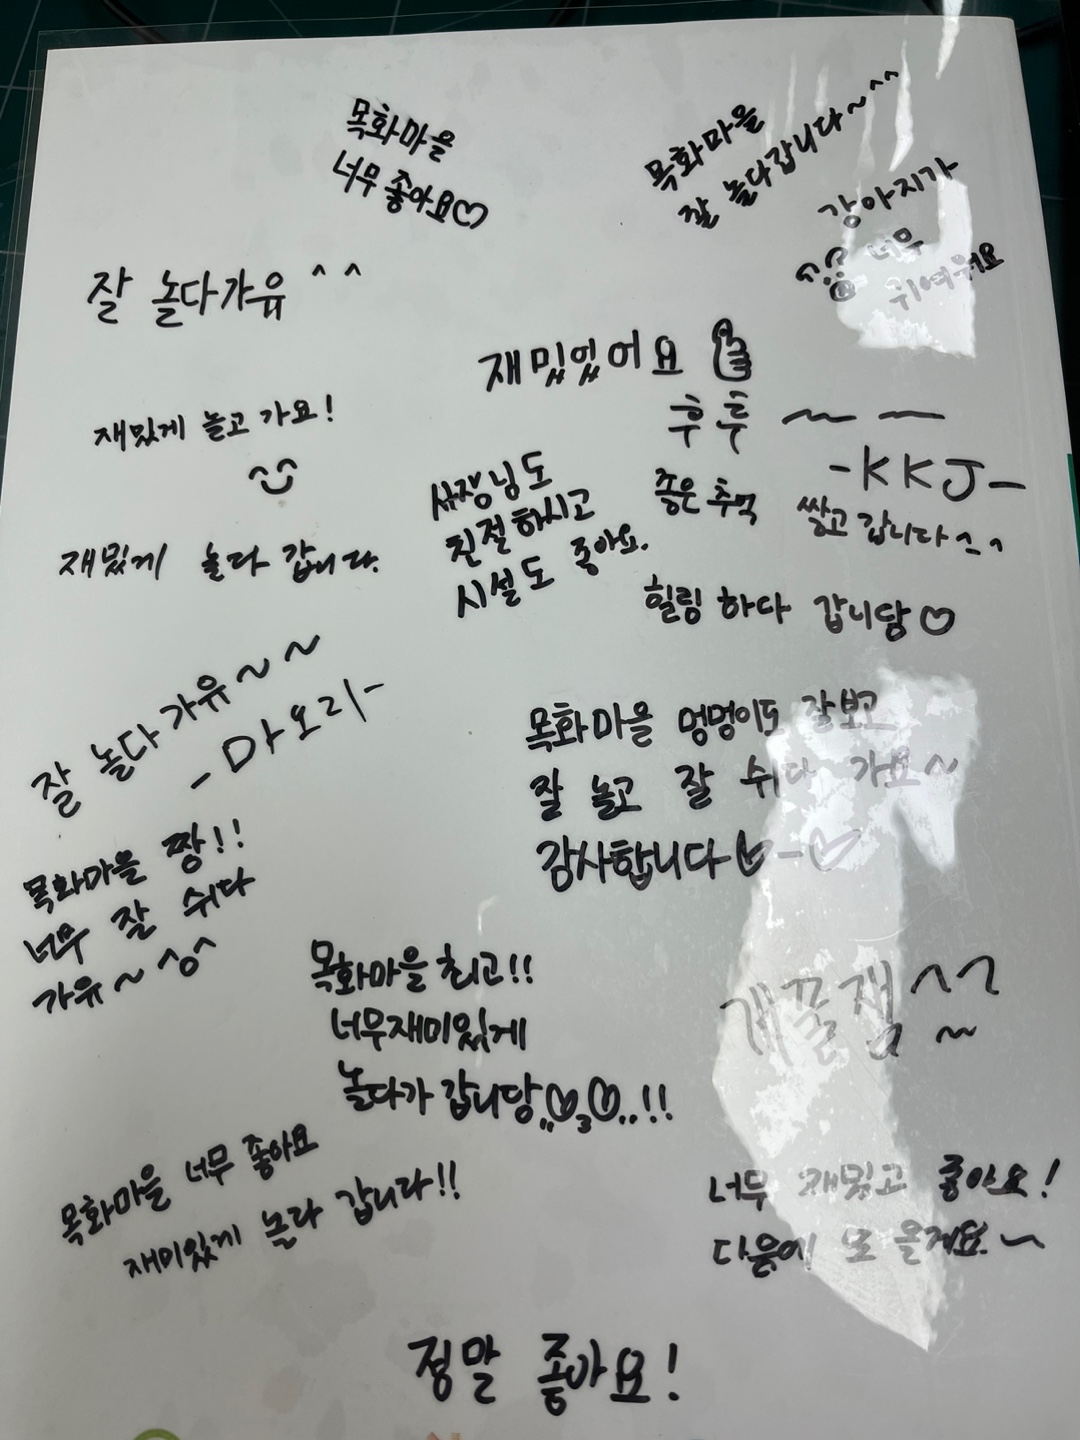 목화마을
너무 좋아요♡
목화마을
잘 놀다갑니다~^^
강아지가
너무
귀여워요
잘 놀다가유 ^^
재밌었어요
후후 ~~
-KKJ-
재밌게 놀고 가요!
사장님도
친절하시고
시설도 좋아요.
좋은 추억 쌓고 갑니다^^
재밌게 놀다 갑니다.
힐링 하다 갑니당♡
잘 놀다가유~~
-마오리-
목화마을 멍멍이도 잘보고
잘 놀고 잘 쉬다 가요~
감사합니다♡-♡
목화마을 짱!!
너무 잘 쉬다
가유~^o^
목화마을 최고!!
너무재미있게
놀다가 갑니당,,♡3♡..!!
개꿀잼^^~
목화마을 너무 좋아요
재미있게 놀다 갑니다!!
너무 재밌고 좋아요!
다음에 또 올게요~
정말 좋아요!